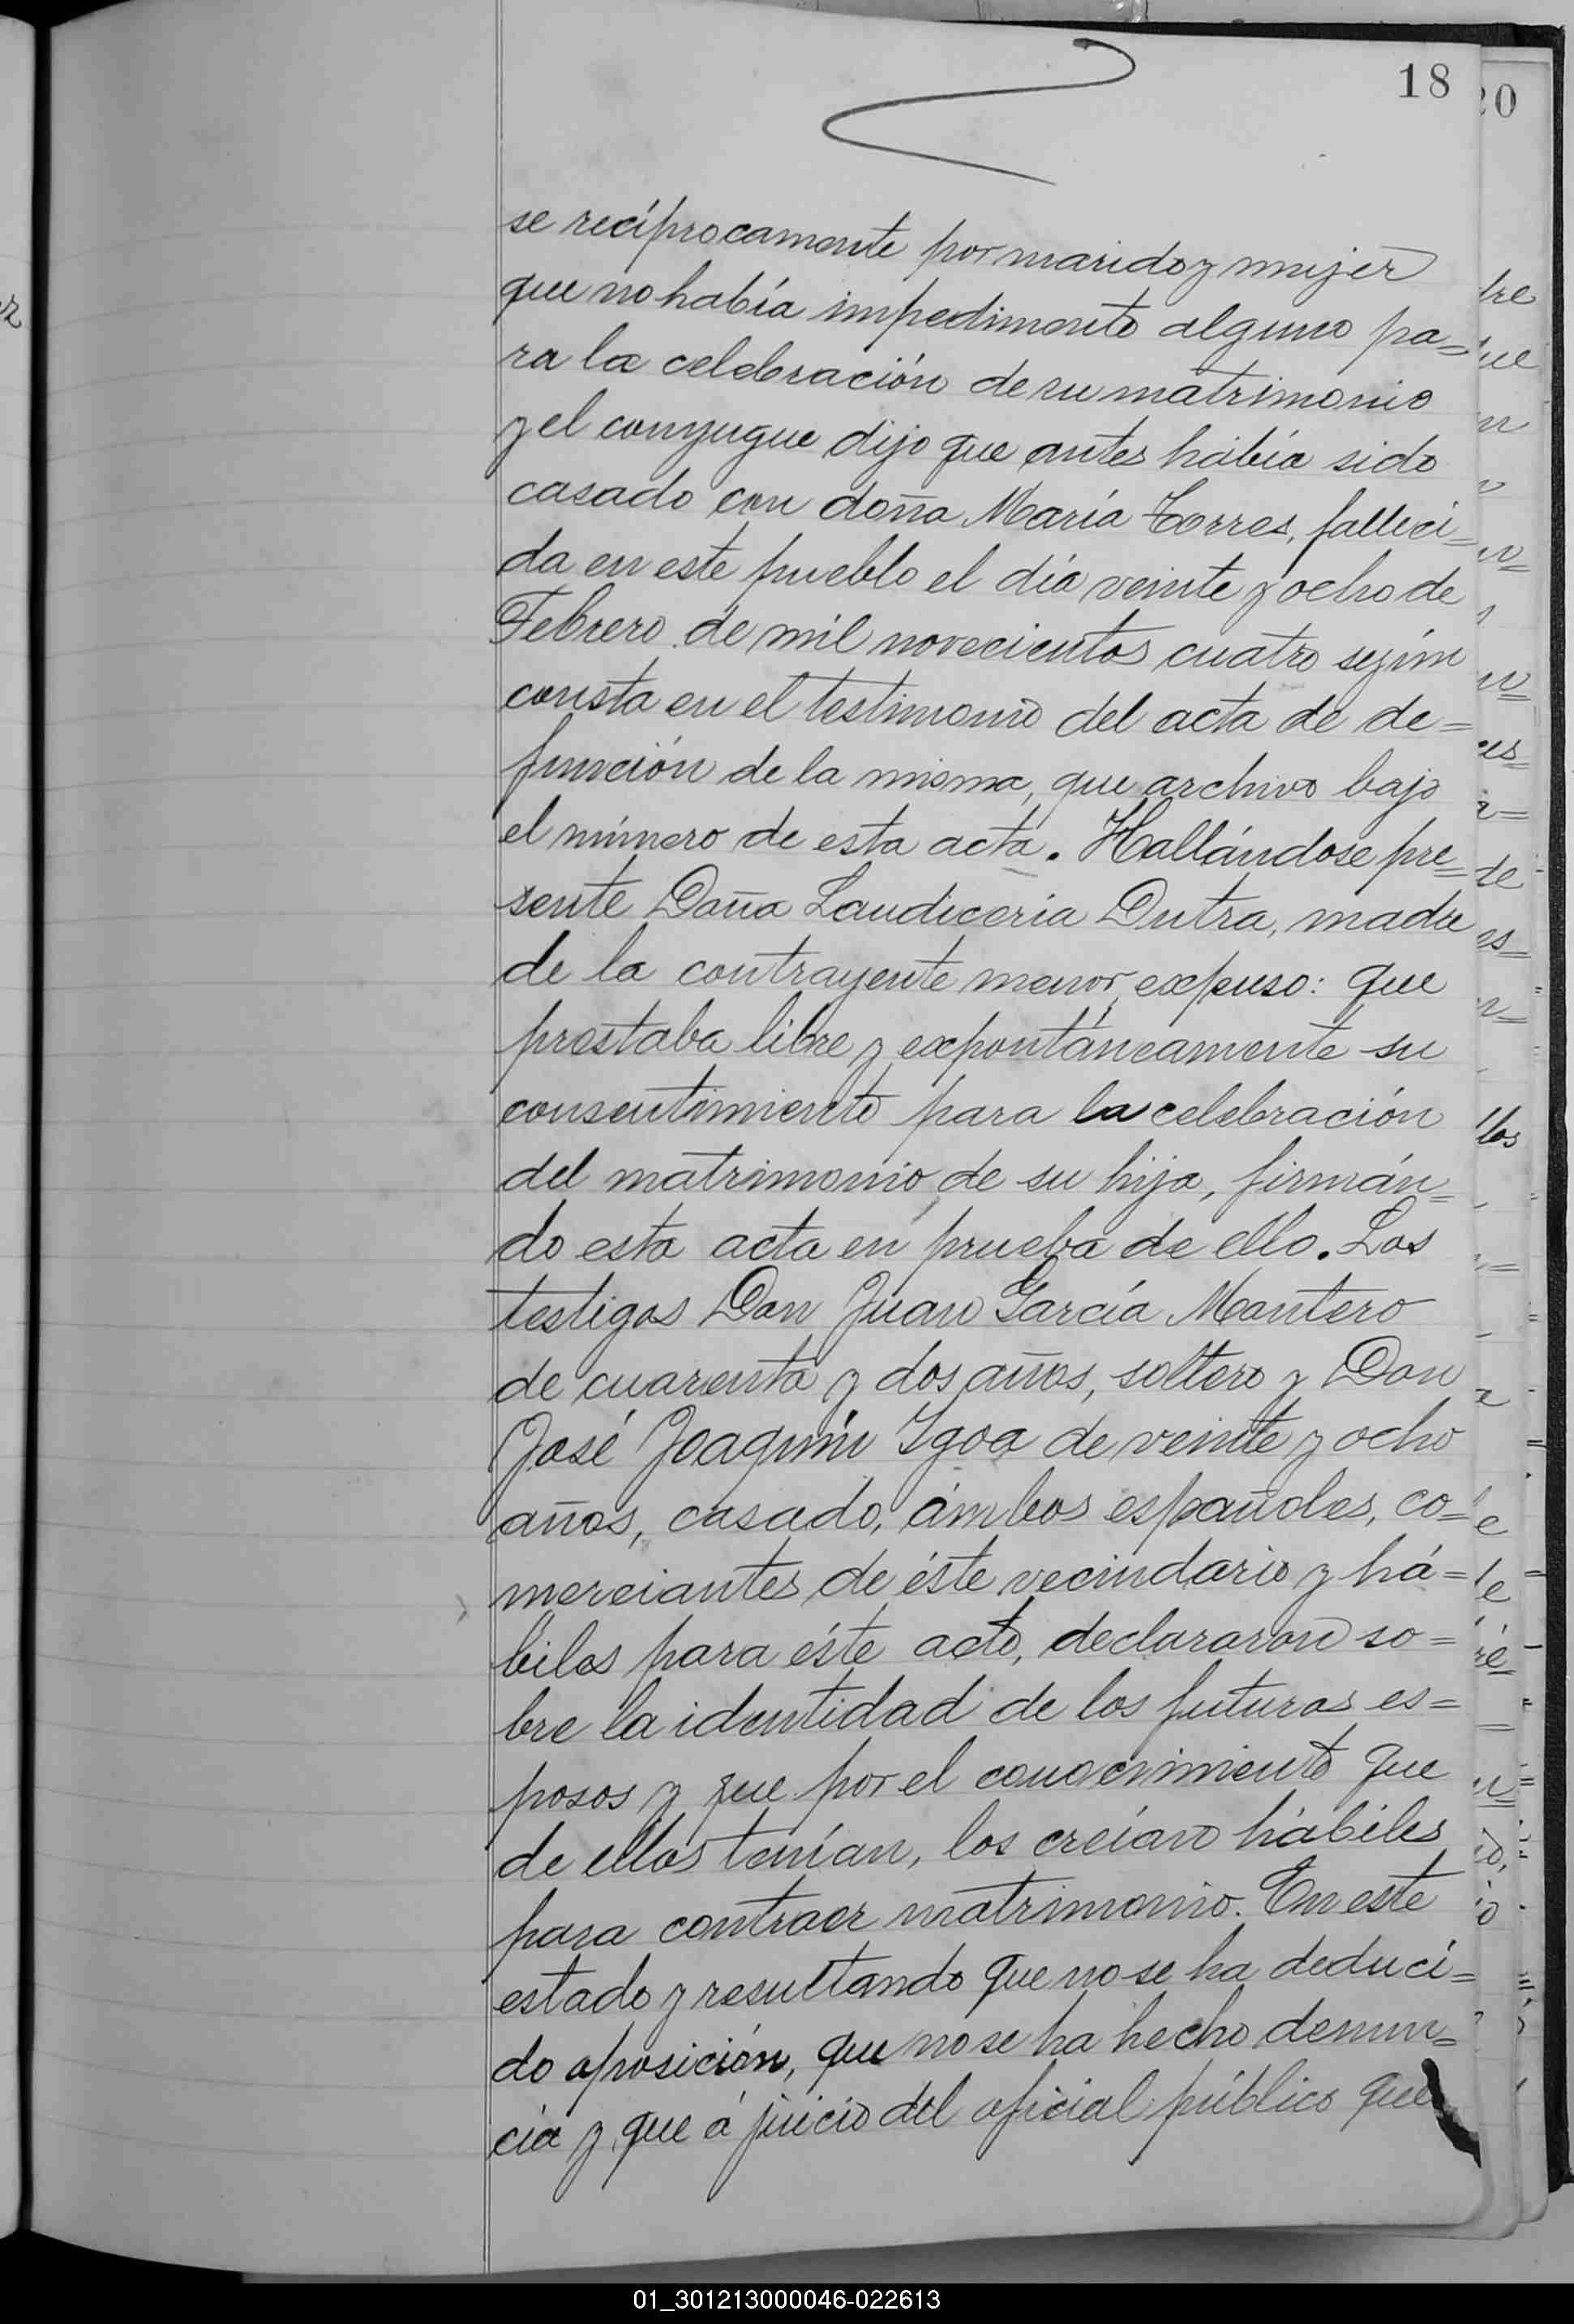 18
20
se recíprocamente por marido y mujer
que no había impedimento alguno pa=
ra la celebración de su matrimonio
y el conyugue dijo que antes había sido
casado con doña María Torres, falleci=
da en este pueblo el día veinte y ocho de
Febrero de mil novecientos cuatro según
consta en el testimonio del acta de de=
función de la misma, que archivo bajo
el número de esta acta. Hallándose pre=
sente Doña Laudiceria Dutra, madre
de la contrayente menor, expuso: que
prestaba libre y expontáneamente su
consentimiento para la celebración
del matrimonio de su hija, firmán=
do esta acta en prueba de ello. Los
testigos Don Juan García Montero
de cuarenta y dos años, soltero y Don
José Joaquín Ygoa de veinte y ocho
años, casado, ámbos españoles, co=
merciantes, de éste vecindario y há=
biles para éste acto, declararon so=
bre la identidad de los futuros es=
posos y que por el conocimiento que
de ellos tenían, los creían hábiles
para contraer matrimonio. En este
estado y resultando que no se ha deduci=
do oposición, que no se ha hecho denun=
cia y que á juicio del oficial público que
01_301213000046-022613